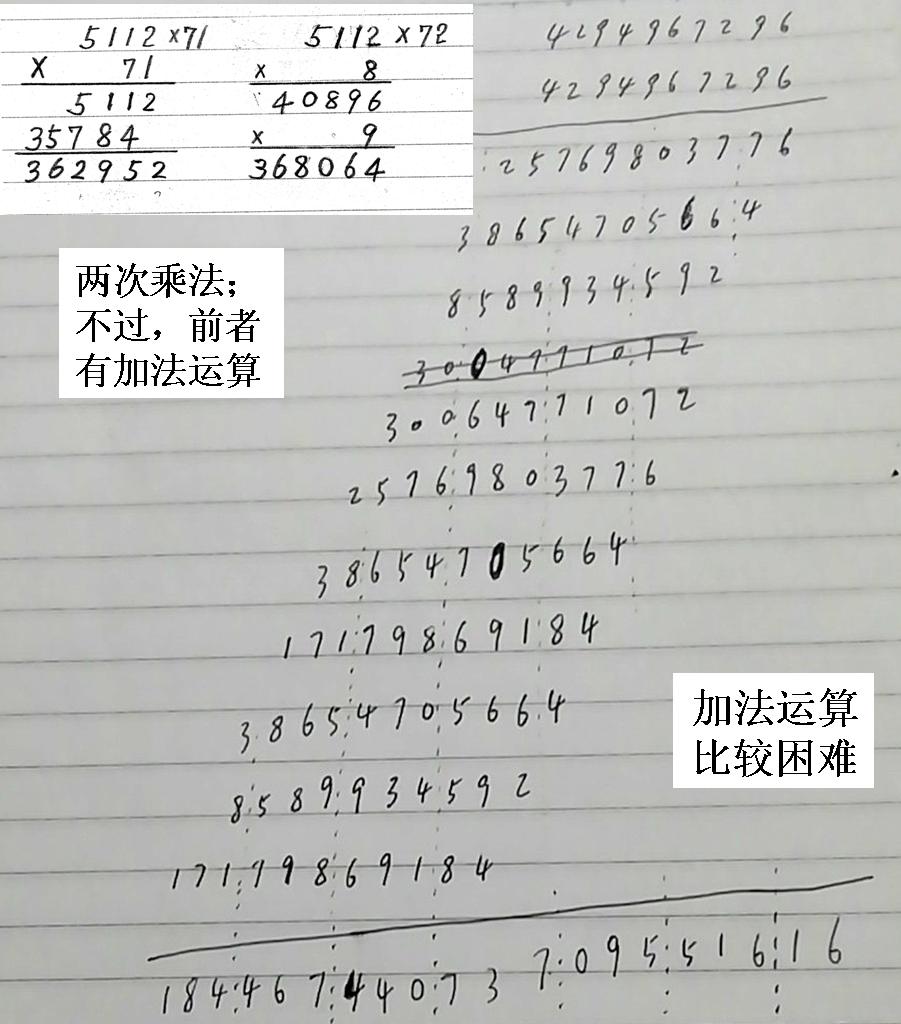 5112×71
× 71
5112
35784
362952
5112×72
× 8
40896
× 9
368064
两次乘法；
不过，前者
有加法运算
4294967296
4294967296
25769803776
38654705664
8589934592
3004771072
30064771072
25769803776
38654705664
17179869184
38654705664
8589934592
17179869184
18446744073709551616
加法运算
比较困难